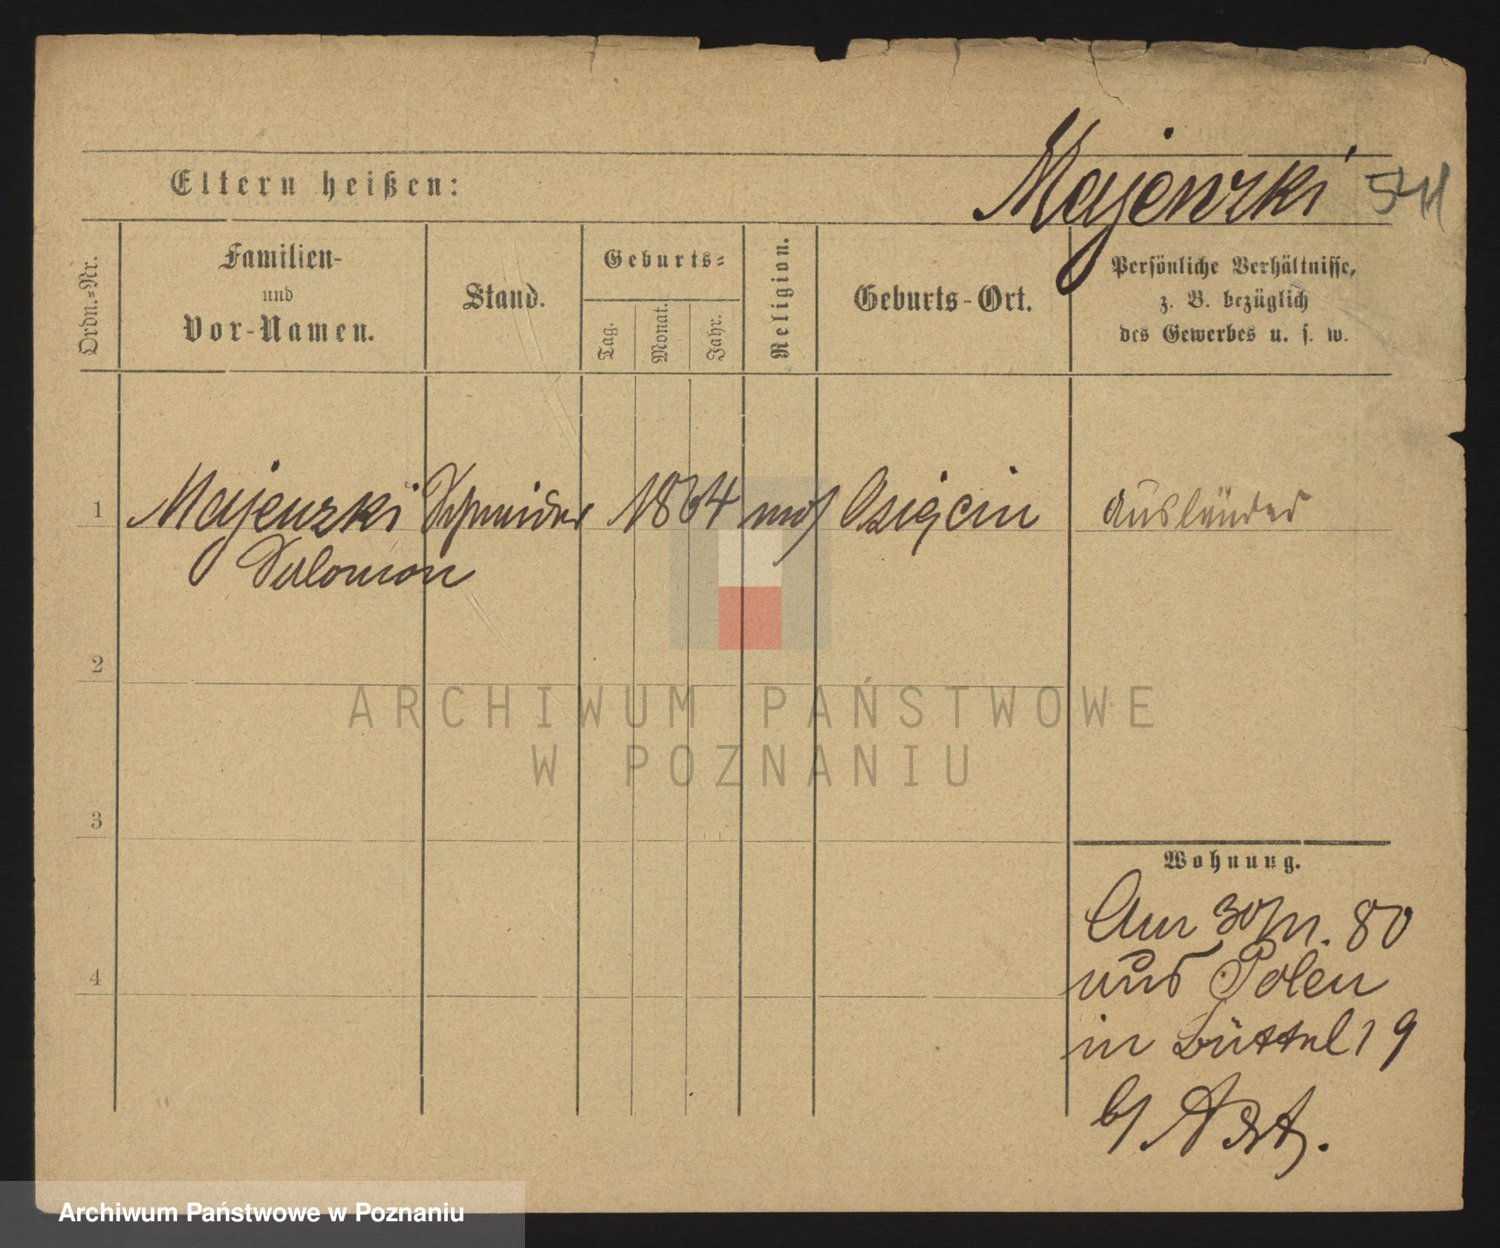 Majewski 541
Eltern heißen:
Ordn.-Nr.
Familien-
und
Vor-Namen.
Stand.
Geburts-
Tag.
Monat.
Jahr.
Religion.
Geburts-Ort.
Persönliche Verhältnisse,
z. B. bezüglich
des Gewerbes u. s. w.
1 Majewski Schneider 1864 mos Osięcin Ausländer
Salomon
2
ARCHIWUM PAŃSTWOWE
W POZNANIU
3
Wohnung.
Am 30/11. 80
4
aus Polen
in Büttel 19
b/
Archiwum Państwowe w Poznaniu